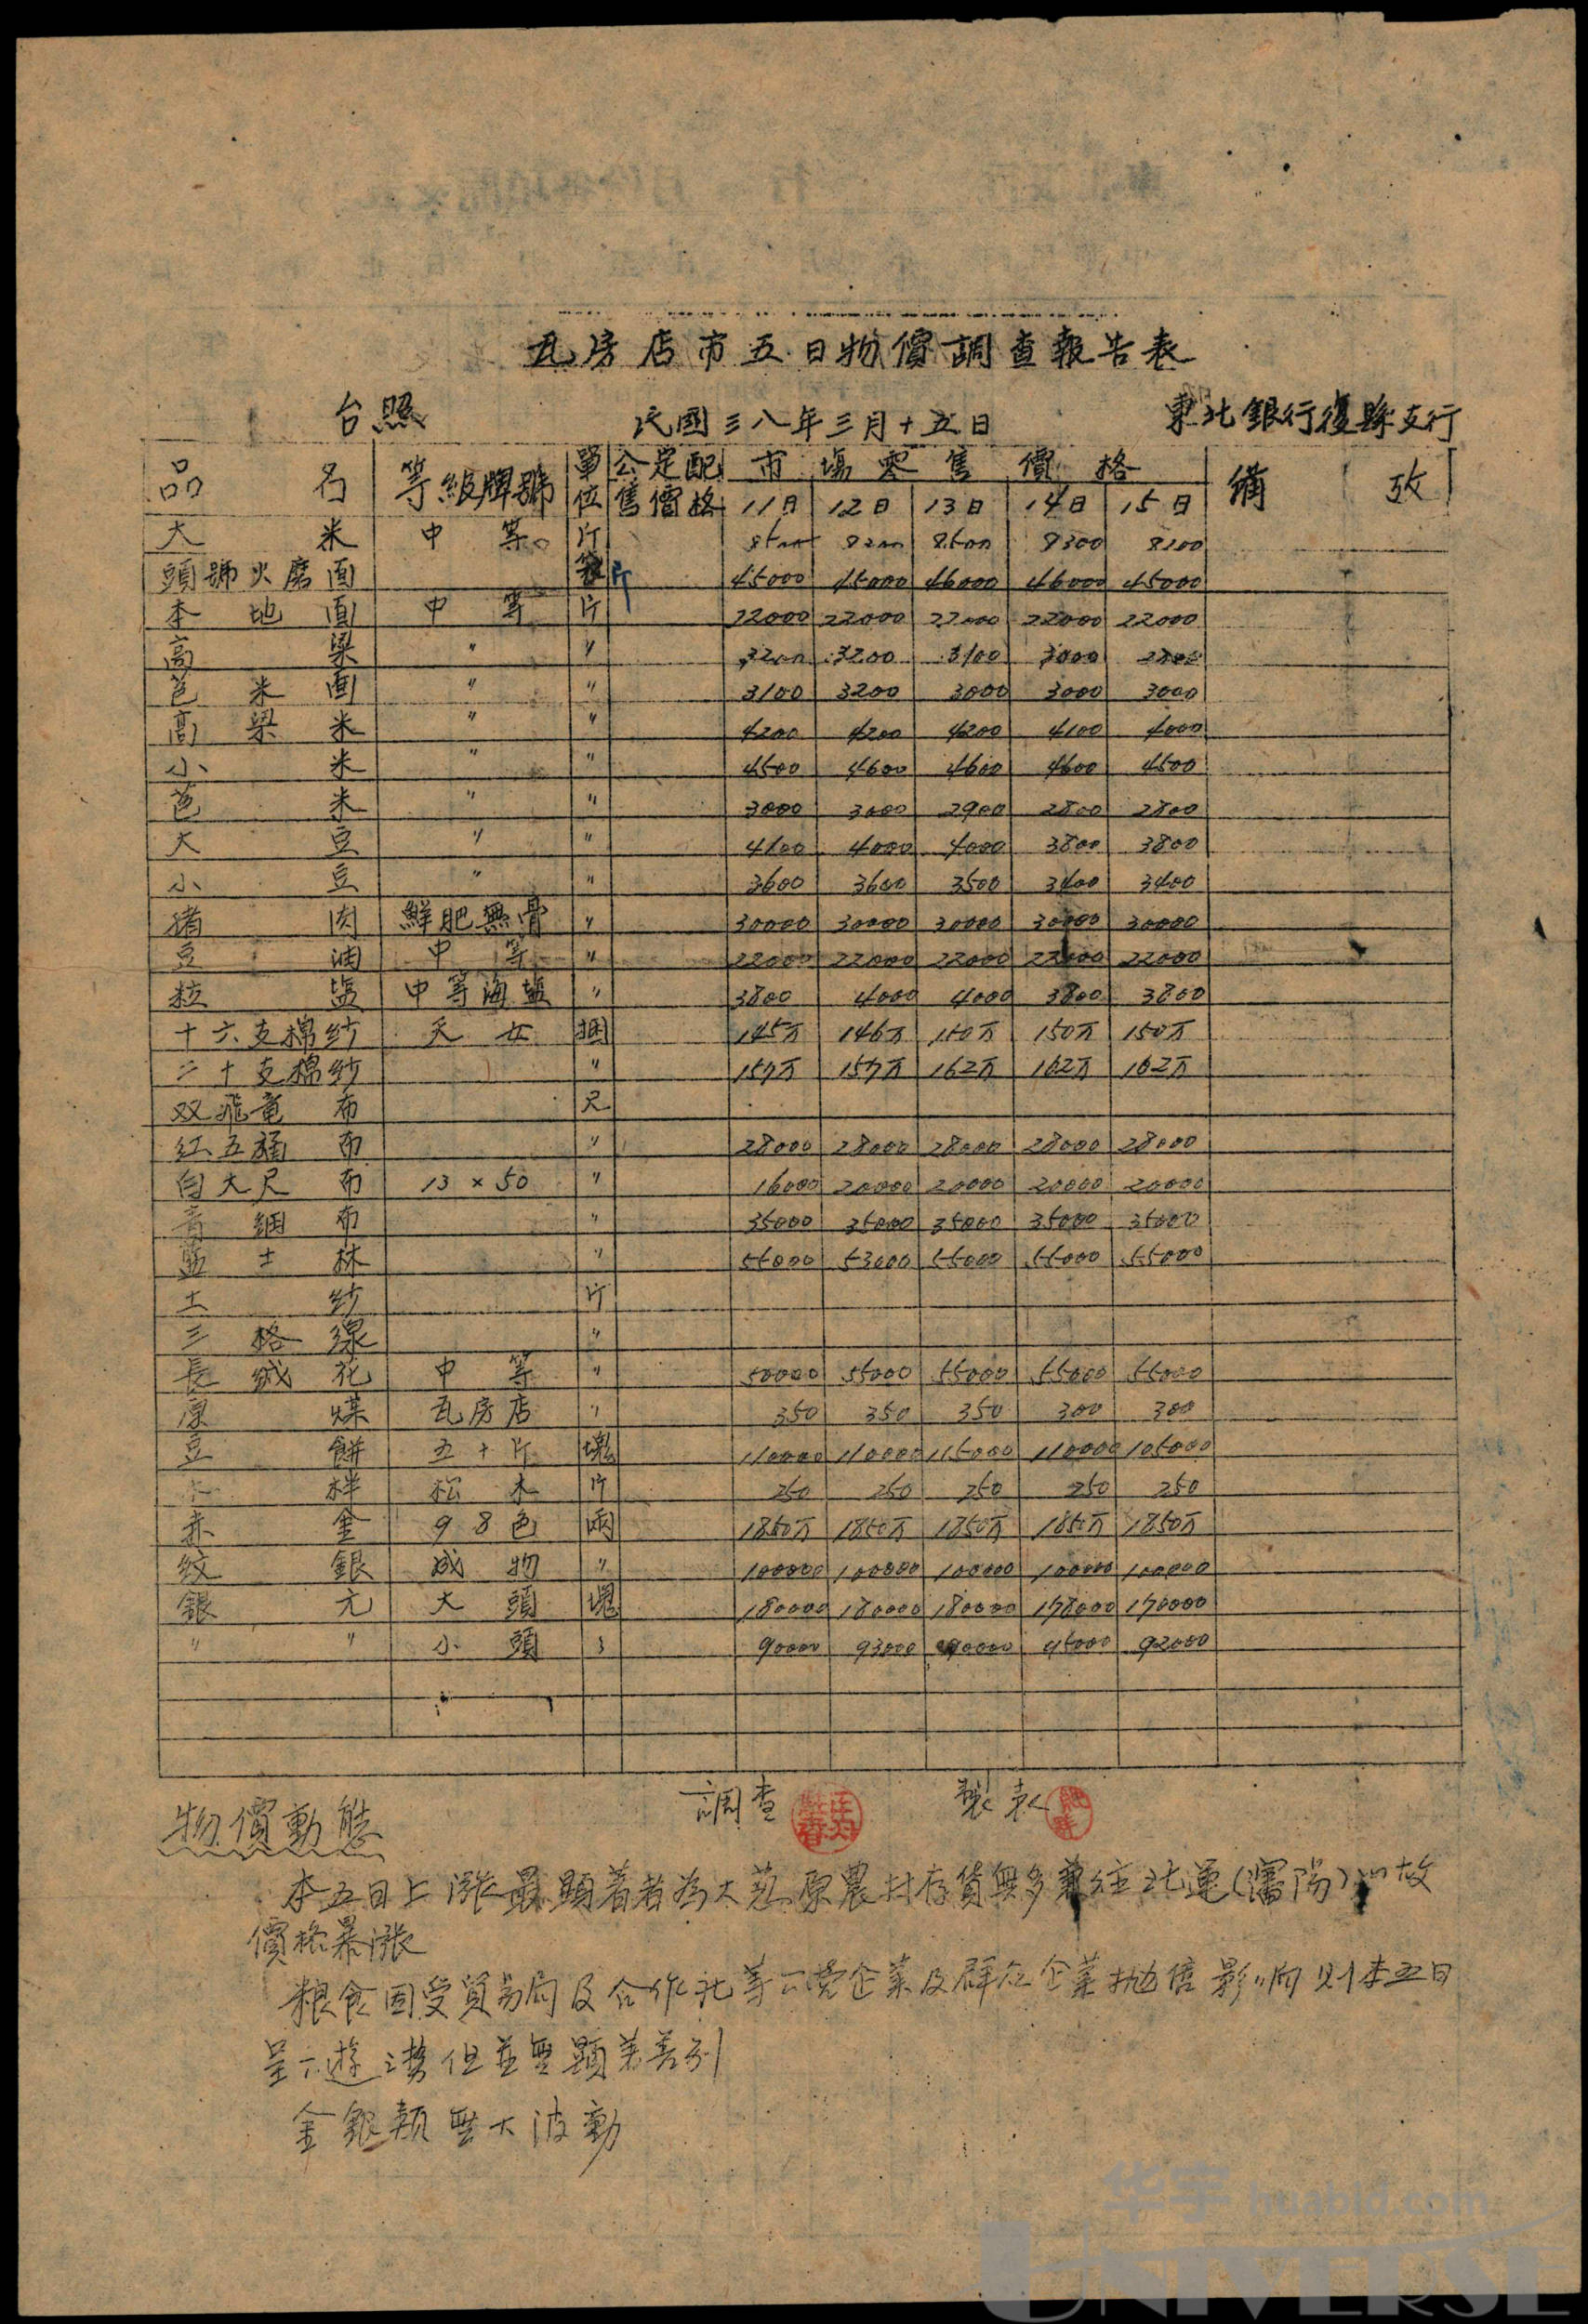 瓦房店市五日物價調查報告表
台照 民國三八年三月十五日 東北銀行復縣支行
品名 等級牌號 單位 公定配售價格 市場零售價格 備攷
11日 12日 13日 14日 15日
大米 中等 斤 8300 8200
頭號火磨面 袋 斤 45000 45000 46000 46000 45000
本地面 中等 斤 22000 22000 22000 22000 22000
高粱 〃 〃 3200 3200 3100 3000
苞米面 〃 〃 3100 3200 3000 3000 3000
高粱米 〃 〃 4200 4200 4200 4100 4000
小米 〃 〃 4500 4600 4600 4600 4500
苞米 〃 〃 3000 3000 2900 2800 2800
大豆 〃 〃 4100 4000 4000 3800 3800
小豆 〃 〃 3600 3600 3500 3400 3400
猪肉 鮮肥無骨 〃 30000 30000 30000 30000 30000
豆油 中等 〃 22000 22000 22000 22000 22000
粒塩 中等海塩 〃 3800 4000 4000 3800 3800
十六支棉紗 天女 捆 145万 146万 150万 150万 150万
二十支棉紗 〃 157万 157万 162万 162万 162万
双飛竜布 尺
红五福布 〃 28000 28000 28000 28000 28000
白大尺布 13×50 〃 16000 20000 20000 20000 20000
青細布 〃 35000 35000 35000 35000 35000
藍士林 〃 55000 53000 55000 55000 55000
土紗 斤
三格線 〃
長絨花 中等 〃 50000 55000 55000 55000 55000
原煤 瓦房店 〃 350 350 350 300 300
豆餅 五十斤 塊 110000 110000 115000 110000 105000
柈 松木 斤 250 250 250 250 250
赤金 98色 兩 1850万 1850万 1850万 1850万 1850万
紋銀 成物 〃 100000 100000 100000 100000 100000
銀元 大頭 塊 180000 180000 180000 178000 170000
〃 〃 小頭 〃 90000 93000 90000 95000 92000
調查 製表
物價動態
本五日上漲最顯著者為大葱原農村存貨無多兼往北運(瀋陽)以故
價格暴漲
粮食因受貿易局及合作社等公營企業及群众企業拋售影响則本五日
呈下游之勢但並無顯著差别
金銀類無大波動
华宇 huabid.com
UNIVERSE